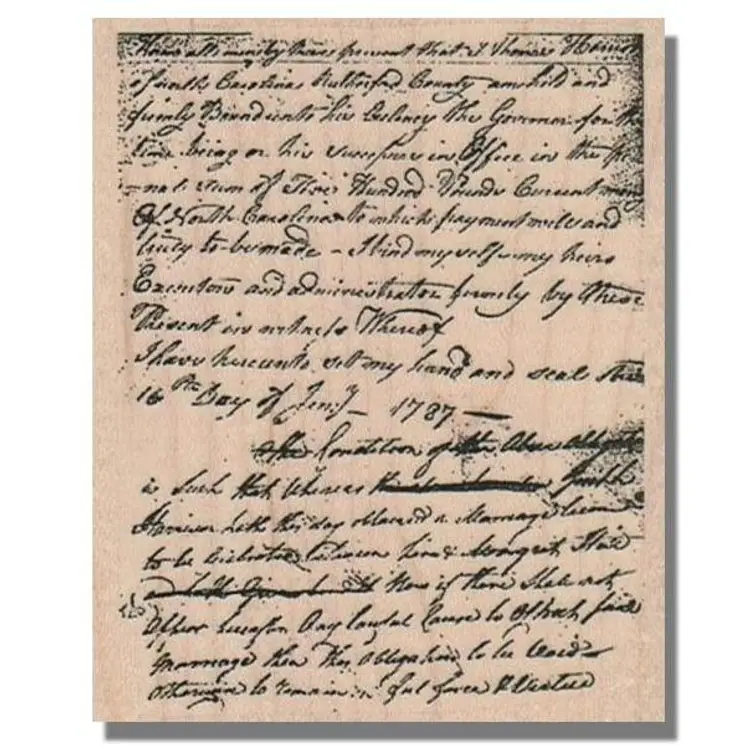 Know all men by these present that I Thomas Harrison
of north Carolina Rutherford County am held and
firmly Bound unto his Exlency the Governor for the
time being or his successors in Office in the
sum of Five Hundred Pounds Current mony
of North Carolina to which payment well and
truly to be made - I bind my self my heirs
Executors and administrators firmly by these
Present in witness Whereof
I have hereunto set my hand and seal this
16th Day of Jeny - 1787 -
The Condition of the Above Obligation
is Such that whereas
Harrison hath this day obtained a Marriage licence
to be Celebrated between him & Margret
Now if there Shale not
Appear hereafter Any lawful Cause to Obstruct said
marriage then this Obligation to be Void
otherwise to remain in ful force & Vertue